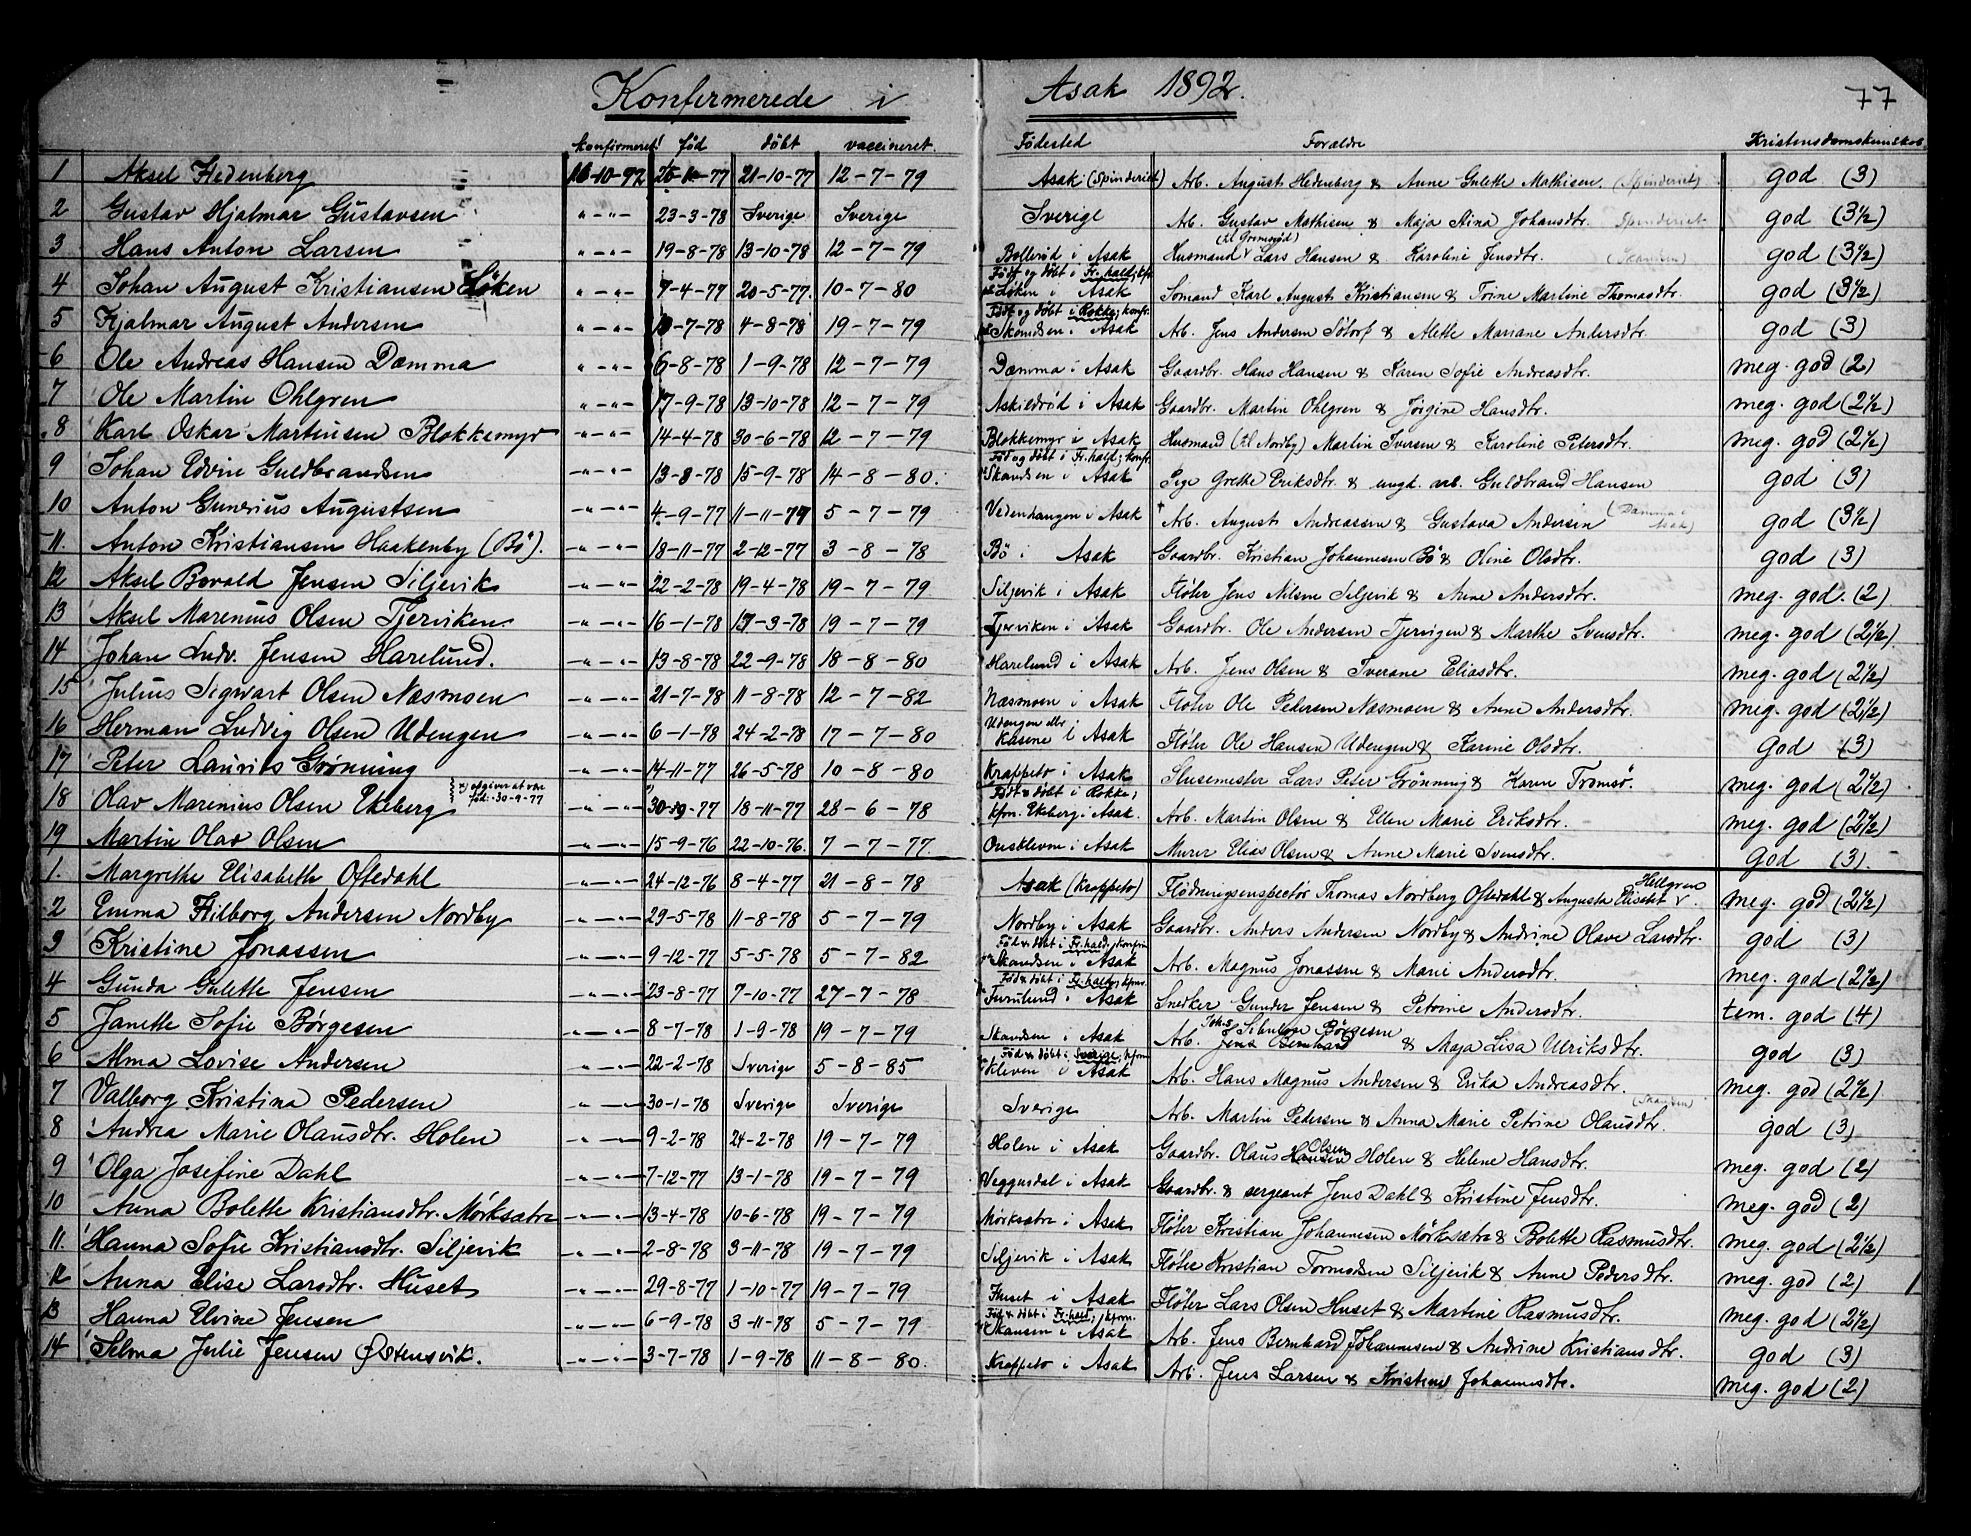 Konfirmerede i Asak 1892. 77
konfirmeret! fød døbt vaccineret. Fødested Forældre Kristendomskundskab.
1 Aksel Hedenberg 16-10-92 -77 21-10-77 12-7-79 Asak (Spinderiet) Arb. August Hedenberg & Anne Gulette Mathisen. (Spinderiet) god (3)
2 Gustav Hjalmar Gustavsen " — " — 23-3-78 Sverige Sverige Sverige Arb. Gustav Mathisen & Maja Stina Johansdtr. Spinderiet god (3½)
3 Hans Anton Larsen " — " — 19-8-78 13-10-78 12-7-79 Bollerød i Asak Husmand (tl Grimsrød) Lars Hansen & Karoline Jensdtr. (Skansen) god (3½)
4 Johan August Kristiansen Løken " — " — 7-4-77 20-5-77. 10-7-80 Født og døbt i Fr.hald; kfr. på Løken i Asak Sømand Karl August Kristiansen & Torine Martine Thomasdtr. god (3½)
5 Hjalmar August Andersen " — " — -7-78 4-8-78 19-7-79 Født og døbt i Rokke; konfr. på Skansen i Asak Arb. Jens Andersen Søtorf & Alette Mariane Andersdtr. god (3)
6 Ole Andreas Hansen Damma " — " — 6-8-78 1-9-78 12-7-79 Damma i Asak Gaardbr. Hans Hansen & Karen Sofie Andreasdtr. meg. god (2)
7 Ole Martin Ohlgren " — " — 17-9-78 13-10-78 12-7-79 Askildrød i Asak Gaardbr. Martin Ohlgren & Jørgine Hansdtr. meg. god (2½)
8 Karl Oskar Martinsen Blokkemyr " — " — 14-4-78 30-6-78 12-7-79 Blokkemyr i Asak Husmand (tl Nordby) Martin Iversen & Karoline Petersdtr. meg. god (2½)
9 Johan Edvin Guldbrandsen " — " — 13-8-78 15-9-78 14-8-80. Fød og døbt i Fr.hald; konfr. på Skandsen i Asak Pige Grethe Eriksdtr. & ungk. arb. Guldbrand Hansen god (3)
10 Anton Gunerius Augustsen " — " — 4-9-77 11-11-77 5-7-79 Vedenhaugen i Asak † Arb. August Andreassen & Gustava Andersen (Damma i Asak) god (3½)
11. Anton Kristiansen Haakenby (Bø). " — " — 18-11-77 2-12-77 3-8-78 Bø i Asak Gaardbr. Kristian Johannesen Bø & Oline Olsdtr. god (3)
12 Aksel Bovald Jensen Siljevik " — " — 22-2-78 19-4-78 19-7-79 Siljevik i Asak Fløter Jens Nilsen Siljevik & Anne Andersdtr. meg. god. (2)
13 Aksel Marenius Olsen Tjerviken. " — " — 16-1-78 17-3-78 19-7-79 Tjerviken i Asak Gaardbr. Ole Andersen Tjervigen & Marthe Svensdtr. meg. god (2½)
14 Johan Ludv. Jensen Harelund. " — " — 13-8-78 22-9-78 18-8-80 Harelund i Asak Arb. Jens Olsen & Iverane Eliasdtr. meg. god (2½)
15 Julius Sigwart Olsen Næsmoen " — " — 21-7-78 11-8-78 12-7-82 Næsmoen i Asak Fløter Ole Pedersen Næsmoen & Anne Andersdtr. meg. god (2½)
16 Herman Ludvig Olsen Udengen " — " — 6-1-78 24-2-78 17-7-80 Udengen eller Kasene i Asak Fløter Ole Hansen Udengen & Karine Olsdtr. god (3)
17 Peter Laurits Grønning " — " — 14-11-77 26-5-78 10-8-80 Krappeto i Asak Slusemester Lars Peter Grønning & Karen Tromsø. meg. god (2½)
18 Olav Marenius Olsen Ekeberg x) opgiver at være fød: 30-9-77 " — " — 30-9-77 18-11-77 28-6-78 Født & døbt i Rokke; kfrm. Ekeberg i Asak. Arb. Martin Olsen & Ellen Marie Eriksdtr. meg. god (2½)
19 Martin Olav Olsen " — " — 15-9-76 22-10-76. 7-7-77 i Asak Murer Elias Olsen & Anne Marie Svensdtr. god (3)
1. Margrethe Elisabeth Oftedahl " — " — 24-12-76 8-4-77 21-8-78 Asak (Krappeto) Flødningsinspectør Thomas Nordberg Oftedahl & Augusta Elisabet Hellgren. meg. god (2½)
2 Emma Hilborg Andersen Nordby " — " — 29-5-78 11-8-78 5-7-79 Nordby i Asak Gaardbr. Anders Andersen Nordby & Andrine Olave Larsdtr. god (3)
3 Kristine Jonassen " — " — 9-12-77 5-5-78 5-7-82 Fød & døbt i Fr.hald; konfirm på Skandsen i Asak Arb. Magnus Jonassen & Marie Andersdtr. meg. god (2½)
4 Gunda Gulette Jensen " — " — 23-8-77 7-10-77 27-7-78 Fød & døbt i Fr.hald; kfrm. på Furulund i Asak Snedker Gunder Jensen & Petrine Andersdtr. tem. god (4)
5 Janette Sofie Børgesen " — " — 8-7-78 1-9-78 19-7-79 Skandsen i Asak Arb. Johs Børgesen Jens Bernhard & Maja Lisa Ulriksdtr. god (3)
6 Alma Lovise Andersen " — " — 22-2-78 Sverige 5-8-85 Fød & døbt i Sverige; kfrm på Kleven i Asak Arb. Hans Magnus Andersen & Erika Andreasdtr. meg. god (2½)
7 Valborg Kristina Pedersen " — " — 30-1-78 Sverige Sverige Sverige Arb. Martin Petersen & Anna Marie Petrine Olausdtr. (Skansen) god (3)
8 Andrea Marie Olausdtr. Holen " — " — 9-2-78 24-2-78 19-7-79 Holen i Asak Gaardbr. Olaus Hansen Olsen Holen & Helene Hansdtr. meg. god (2)
9 Olga Josefine Dahl " — " — 7-12-77 13-1-78 19-7-79 Veggusdal i Asak Gaardbr. & sergeant Jens Dahl & Kristine Jensdtr. meg. god (2)
10 Anna Bolette Kristiansdtr. Mørksætre " — " — 13-4-78 10-6-78 19-7-79 Mørksætre i Asak Fløter Kristian Johannesen Mørksætre & Bolette Rasmusdtr. meg. god (2½)
11. Hanna Sofie Kristiansdtr. Siljevik " — " — 2-8-78 3-11-78 19-7-79 Siljevik i Asak Fløter Kristian Tormodsen Siljevik & Anne Pedersdtr. meg. god (2)
12 Anna Elise Larsdtr. Huset " — " — 29-8-77 1-10-77 19-7-79 Huset i Asak Fløter Lars Olsen Huset & Martine Rasmusdtr. meg. god (2½)
13 Hanna Elvine Jensen " — " — 6-9-78 3-11-78 5-7-79 Fød & døbt i Fr.hald; kfrm. på Skansen i Asak Arb. Jens Bernhard Johannesen & Andrine Kristiansdtr. god (3)
14 Selma Julie Jensen Østensvik. " — " — 3-7-78 1-9-78 11-8-80. Krappeto i Asak Arb. Jens Larsen & Kristine Johannesdtr. meg. god (2)